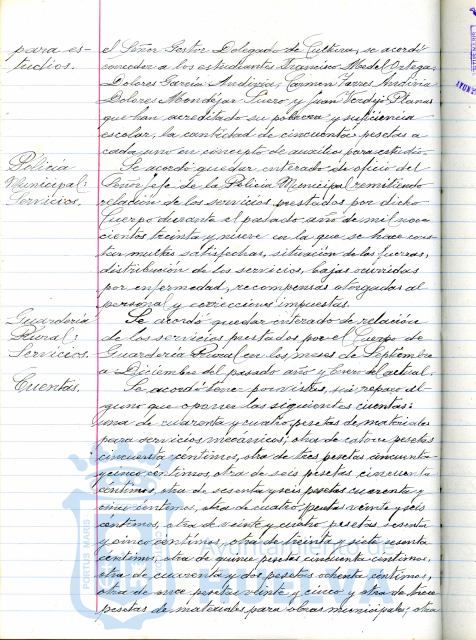 para es-
tudios.
el Señor Gestor Delegado de Cultura, se acordó
conceder a los estudiantes Francisco Medel Ortega,
Dolores García Andivia, Carmen Torres Andivia
Dolores Mondejar Suero y Juan Verdejo Planas
que han acreditado su pobreza y suficiencia
escolar, la cantidad de cincuenta pesetas a
cada uno en concepto de auxilios para estudio.
Policía
Municipal:
Servicios.
Se acordó quedar enterado de oficio del
Señor Jefe de la Policía Municipal remitiendo
relación de los servicios prestados por dicho
Cuerpo durante el pasado año de mil nove
cientos treinta y nueve en la que se hace cons
tar multas satisfechas, situación de las fuerzas,
distribución de los servicios, bajas ocurridas
por enfermedad, recompensas otorgadas al
personal y correcciones impuestas.
Guardería
Rural:
Servicios.
Se acordó quedar enterado de relación
de los servicios prestados por el Cuerpo de
Guardería Rural en los meses de Septiembre
a Diciembre del pasado año y Enero del actual.
Cuentas.
Se acordó tener por vistas, sin reparo al
guno que oponer las siguientes cuentas:
una de cuarenta y cuatro pesetas de materiales
para servicios mecánicos; otra de catorce pesetas
cincuenta céntimos, otra de tres pesetas cincuenta
y cinco céntimos, otra de seis pesetas cincuenta
céntimos, otra de sesenta y seis pesetas cuarenta y
cinco céntimos, otra de cuatro pesetas veinte y seis
céntimos, otra de veinte y cuatro pesetas sesenta
y cinco céntimos, otra de treinta y siete sesenta
céntimos, otra de quince pesetas cincuenta céntimos,
otra de cuarenta y dos pesetas ochenta céntimos,
otra de once pesetas veinte y cinco y otra de trece
pesetas de materiales para obras municipales; otra
PORTUS MARIS
Ayuntamiento de
HUELVA